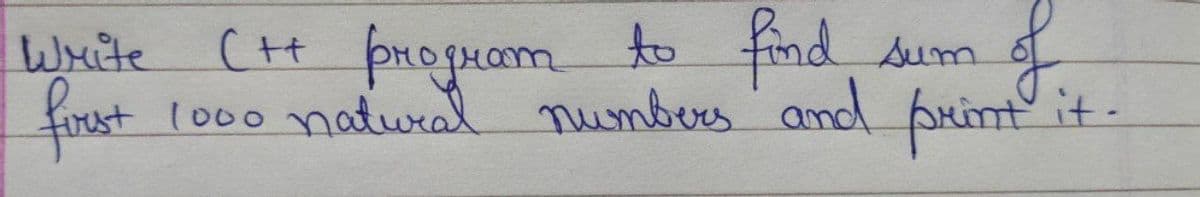 Write C++ program to find sum of
first 1000 natural numbers and print it.